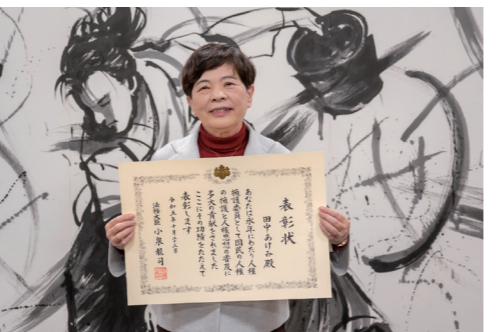 表彰状
田中あけみ殿
あなたは永年にわたり人権
擁護委員として国民の人権
の擁護と人権思想の普及に
多大の貢献をされました
ここにその功績をたたえて
表彰します
令和五年十月二十三日
法務大臣 小泉龍司